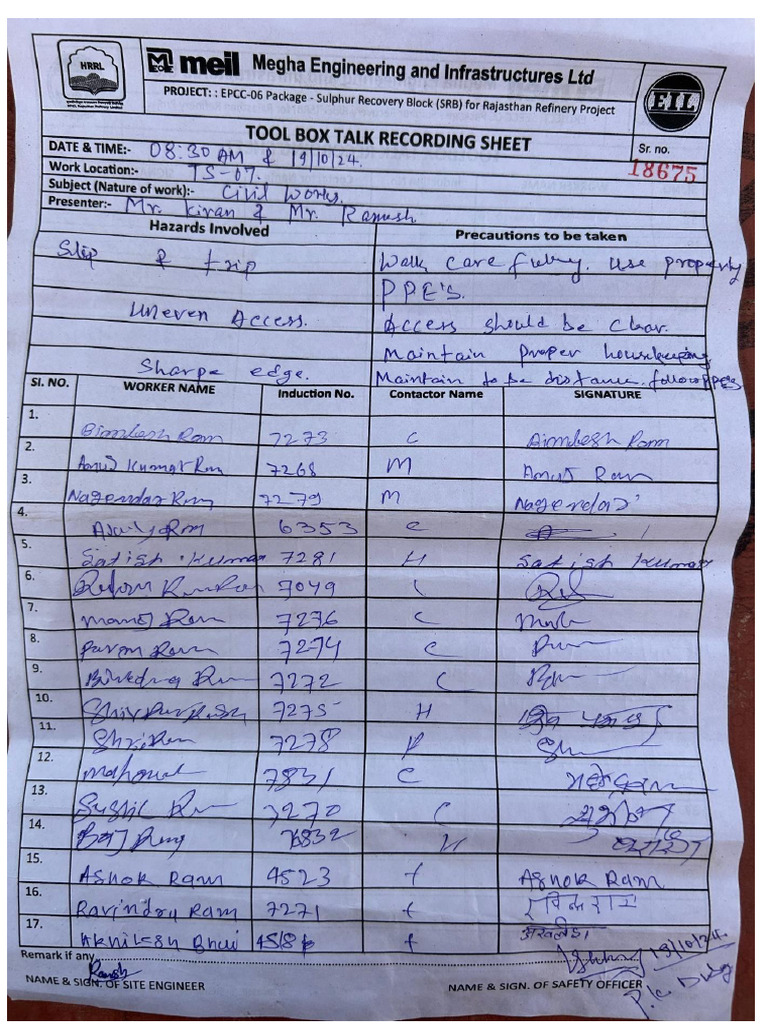 HRRL
meil Megha Engineering and Infrastructures Ltd
EIL
PROJECT: : EPCC-06 Package - Sulphur Recovery Block (SRB) for Rajasthan Refinery Project
TOOL BOX TALK RECORDING SHEET
DATE & TIME:- 08:30 AM & 19/10/24.
Sr. no.
18675
Work Location:- TS-07.
Subject (Nature of work):- Civil Works.
Presenter:- Mr. Kiran & Mr. Ramesh
Hazards Involved Precautions to be taken
Slip & trip Walk carefully. Use property
PPE'S.
Uneven Access. Access should be clear.
Maintain proper housekeeping
Sharpe edge. Maintain to be distance. follow PPE's
Sl. NO. WORKER NAME Induction No. Contactor Name SIGNATURE
1. Bimlesh Ram 7273 C Bimlesh Ram
2. Amit Kumar Ram 7268 M Amit Ram
3. Nagendar Ram 7279 M Nagendar
4. Ram 6353 C
5. Satish Kumar 7281 H Satish Kumar
6. 7049
7. Manoj Ram 7276 C
8. Pavan Ram 7274 C
9. Ram 7272 C
10. 7275 H
11. Shri Ram 7278
12. 7831 C
13. Sushil Ram 7270 C
14. 7832
15. Ashok Ram 4523 Ashok Ram
16. Ravindra Ram 7271
17. Akhilesh Bhui
Remark if any
Ramesh
19/10/24
NAME & SIGN. OF SITE ENGINEER NAME & SIGN. OF SAFETY OFFICER